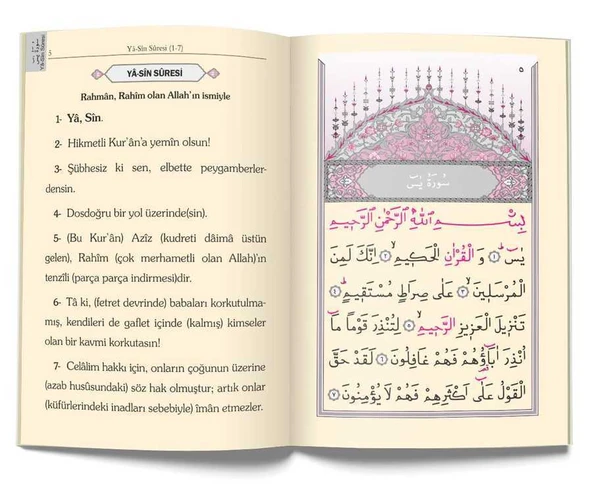 سورة يس
Yâ-Sîn Sûresi
5
Yâ-Sîn Sûresi (1-7)
YÂ-SÎN SÛRESİ
Rahmân, Rahîm olan Allah'ın ismiyle
1- Yâ, Sîn.
2- Hikmetli Kur'ân'a yemîn olsun!
3- Şübhesiz ki sen, elbette peygamberler-
densin.
4- Dosdoğru bir yol üzerinde(sin).
5- (Bu Kur'ân) Azîz (kudreti dâimâ üstün
gelen), Rahîm (çok merhametli olan Allah)'ın
tenzîli (parça parça indirmesi)dir.
6- Tâ ki, (fetret devrinde) babaları korkutulma-
mış, kendileri de gaflet içinde (kalmış) kimseler
olan bir kavmi korkutasın!
7- Celâlim hakkı için, onların çoğunun üzerine
(azab husûsundaki) söz hak olmuştur; artık onlar
(küfürlerindeki inadları sebebiyle) îmân etmezler.
٥
سُورَةُ يٰسٓ
بِسْمِ اللّٰهِ الرَّحْمٰنِ الرَّحِيمِ
يٰسٓ ﴿١﴾ وَالْقُرْاٰنِ الْحَكِيمِ ﴿٢﴾ اِنَّكَ لَمِنَ
الْمُرْسَلِينَ ﴿٣﴾ عَلٰى صِرَاطٍ مُسْتَقِيمٍ ﴿٤﴾
تَنْزِيلَ الْعَزِيزِ الرَّحِيمِ ﴿٥﴾ لِتُنْذِرَ قَوْمًا مَٓا
اُنْذِرَ اٰبَٓاؤُهُمْ فَهُمْ غَافِلُونَ ﴿٦﴾ لَقَدْ حَقَّ
الْقَوْلُ عَلٰٓى اَكْثَرِهِمْ فَهُمْ لَا يُؤْمِنُونَ ﴿٧﴾